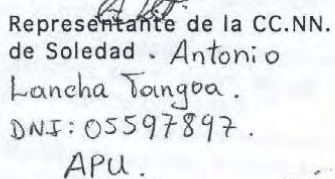 Representante de la CC.NN.
de Soledad . Antonio
Lancha Tangoa.
DNI: 05597897.
APU.